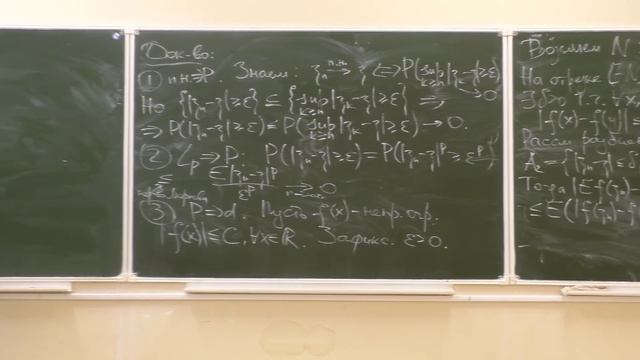 Док-во:
① п.н.⇒P. Знаем: ξₙ →п.н. ξ ⇔ P(sup_{k≥n}|ξₖ-ξ|≥ε) → 0
Но {|ξₙ-ξ|≥ε} ⊆ {sup_{k≥n}|ξₖ-ξ|≥ε} ⇒
⇒ P(|ξₙ-ξ|≥ε) ≤ P(sup_{k≥n}|ξₖ-ξ|≥ε) → 0.
② Lₚ⇒P: P(|ξₙ-ξ|≥ε) = P(|ξₙ-ξ|^p ≥ ε^p)
≤ E|ξₙ-ξ|^p / ε^p →_{n→∞} 0
③ P⇒d. Пусть f(x)-непр. огр.
|f(x)|≤C, ∀x∈ℝ. Зафикс. ε>0.
Возьмем N
На отрезке
∃δ>0 т.ч. ∀x
|f(x)-f(y)|≤
A₂={|ξₙ-ξ|≤δ
Тогда |Ef(ξₙ)-
≤E(|f(ξₙ)-f